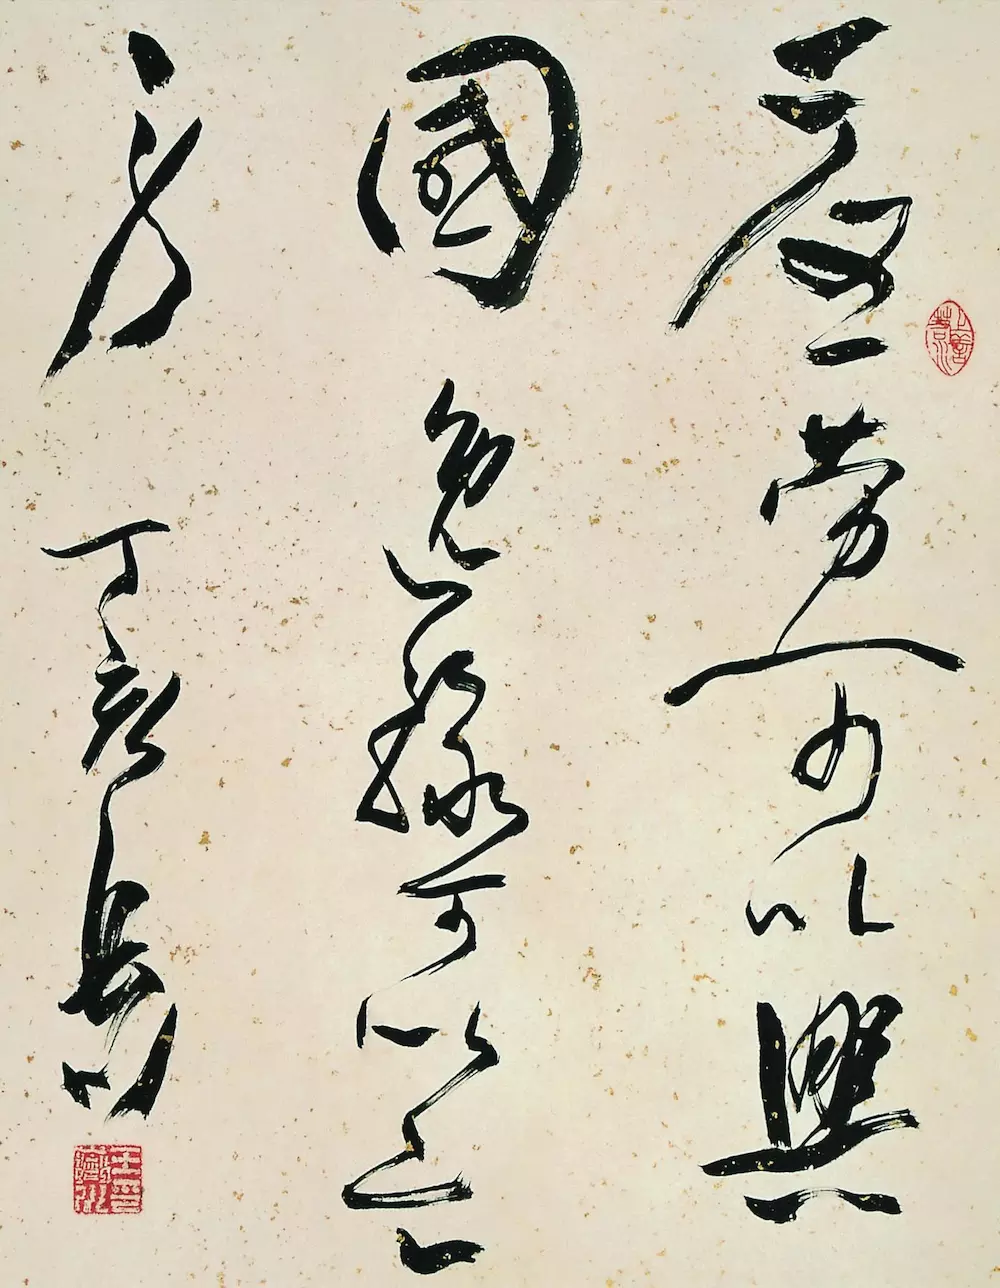 憂勞可以興
國逸豫可以亡
身
丁亥